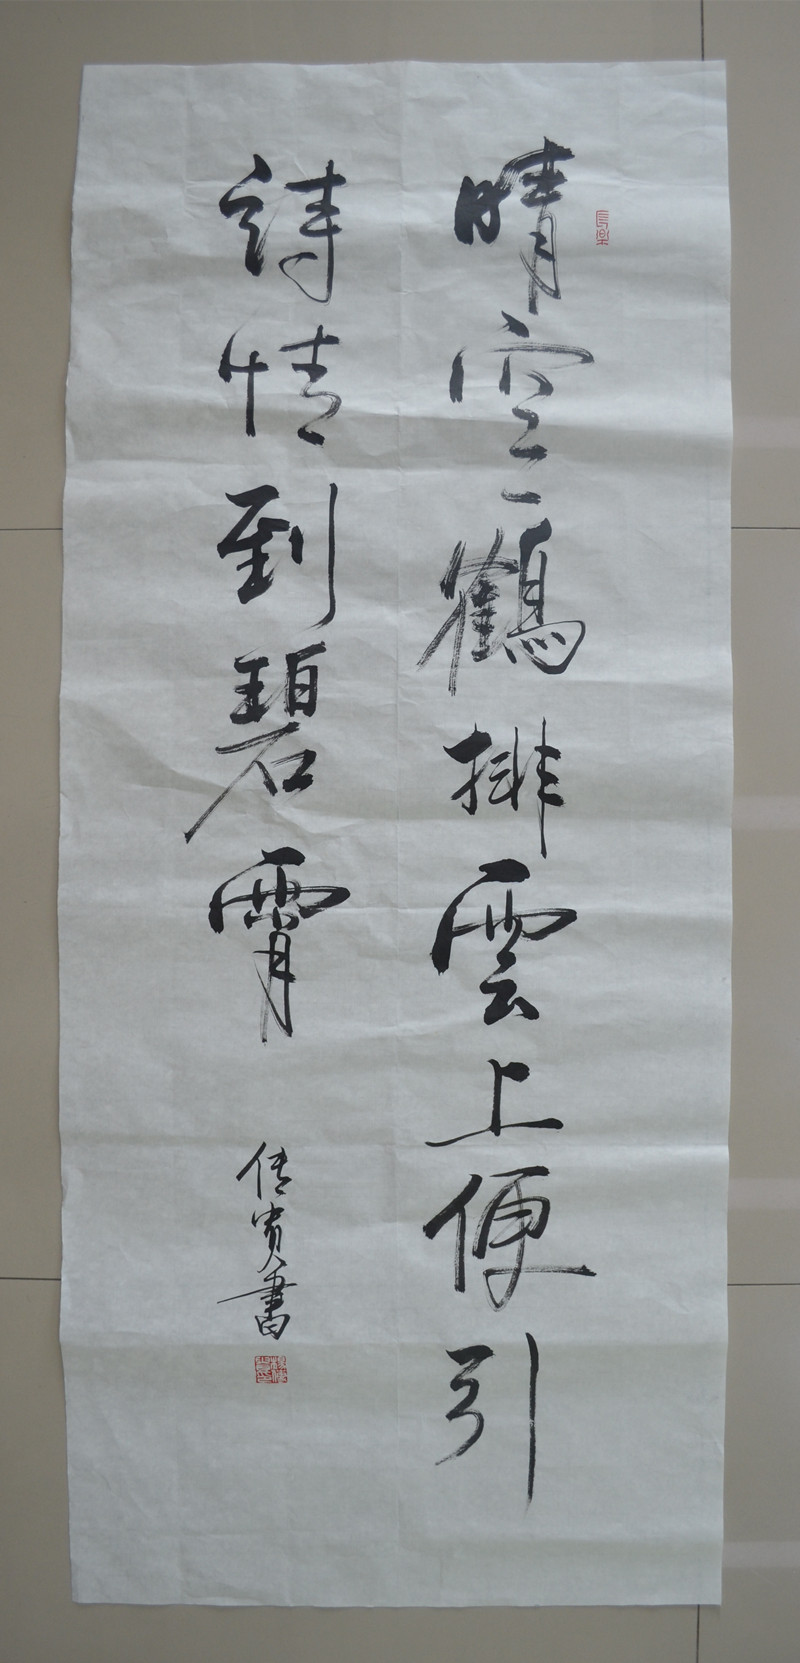 晴空鶴排雲上便引
詩情到碧霄
傳寶書